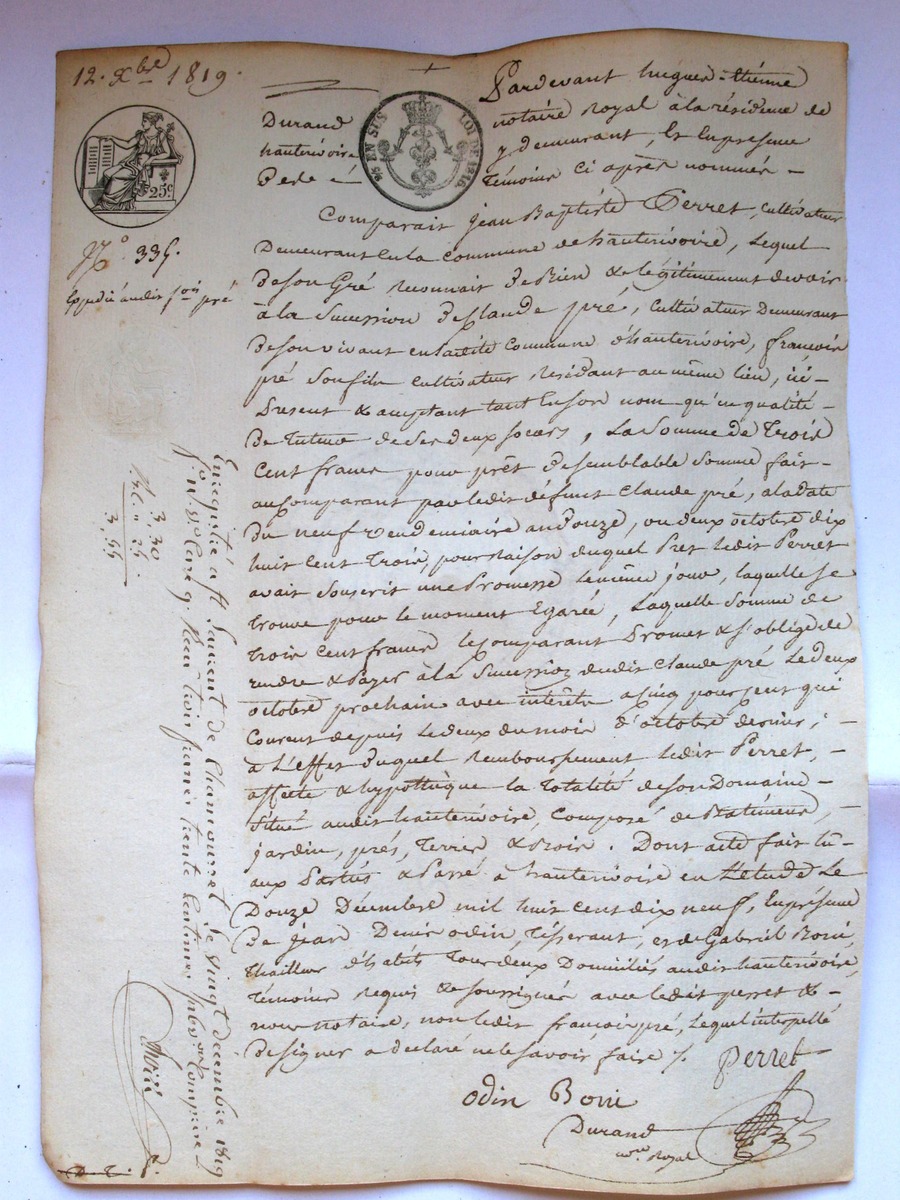 12. Xbre 1819.
Pardevant hugues-étienne
Durand notaire Royal à la résidence de
hauterivoire y demeurant, & En présence
De témoins ci après nommés -
EN SUS LOI DE 1816
25c
No. 335.
Expédié audit pré
Comparait jean Baptiste Perret, cultivateur
Demeurant En la commune de hauterivoire, Lequel
De son Gré reconnait De Bien & légitimement devoir
à la Sucession De Claude pré, cultivateur Demeurant
De son vivant en ladite commune d'hauterivoire, françois
pré Son fils cultivateur residant au même lieu, ici
Présent & acceptant tant En son nom qu'en qualité -
De tuteur de Ses deux Soeurs, La Somme De trois
Cent francs pour prêt De semblable Somme fait -
au Comparant par ledit défunt Claude pré, à la date
Du neuf vendemiaire an Douze, ou deux octobre dix
huit cent trois, pour raison duquel Prêt ledit Perret
avait Souscrit une Promesse le même jour, laquelle se
trouve pour le moment Egarée, Laquelle Somme de
trois Cent francs le Comparant Promet & s'oblige de
rendre & Payer à la Sucession dudit Claude pré Le deux
octobre prochain avec intérêts à Cinq pour cent qui
Courent depuis Le deux du mois d'octobre dernier; -
à L'effet Duquel Remboursement ledit Perret, -
affecte & hypothèque la totalité de son Domaine -
Situé audit hauterivoire, Composé de Batiments, -
jardin, prés, Terres & Bois. Dont acte fait lû
aux Parties & Passé à hauterivoire en L'etude Le
Douze Décembre mil huit cent dix neuf, En présence
De jean Denis odin, Tisserant, et de Gabriel Boni,
thailleur d'habits tour deux Domiciliés audit hauterivoire,
Témoins Requis & soussignés avec ledit perret &
nous notaire, non ledit françois pré, lequel interpellé
De signer a déclaré ne le savoir faire /. Perret
odin Boni
Durand
nre Royal
Enregistré à St Laurent de Chamousset le vingt décembre 1819
Reçu trois francs trente centimes Subvon Comprise
3,30
3,55